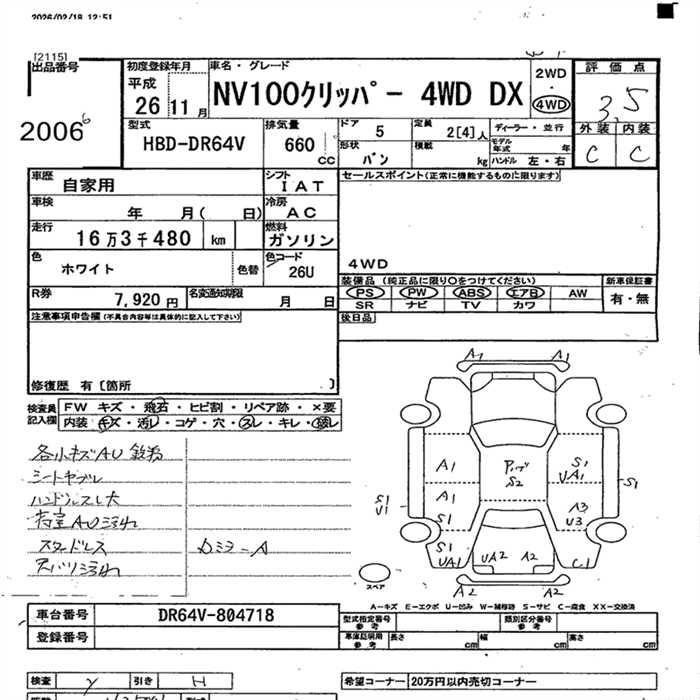 2026/02/18 12:51
[2115]
出品番号
2006
初度登録年月
平成
26 11 月
車名・グレード
NV100クリッパー 4WD DX
2WD
・
4WD
評価点
3.5
外装 内装
C C
型式
HBD-DR64V
排気量
660 CC
ドア
5
形状
バン
定員
2[4]人
積載
kg
ディーラー・並行
モデル年式 年
ハンドル 左・右
車歴
自家用
シフト
IAT
車検
年 月( 日)
冷房
AC
走行
16万3千480 km
燃料
ガソリン
色
ホワイト
色替
色コード
26U
R券
7,920円
名変通知期限
月 日
セールスポイント(正常に機能するものに限ります)
4WD
装備品(純正品に限り○をつけてください)
新車保証書
PS PW ABS エアB AW
SR ナビ TV カワ
有・無
後日品
注意事項申告欄(不具合内容等は具体的に記入して下さい)
修復歴 有〔箇所 〕
検査員記入欄
FW キズ・飛石・ヒビ割・リペア跡・×要
内装 キズ・汚レ・コゲ・穴・スレ・キレ・破レ
各小キズAU
ハンドルスレ大
スタッドレス
A1 A1
A1
A1
S1
S1
U1
S1
UA1
S2
S1
UA1
S1
A3
U3
UA2 A2
C1
A2 A2
スペア
A―キズ E―エクボ U―凹み W―補修跡 S―サビ C―腐食 XX―交換済
車台番号
DR64V-804718
登録番号
型式指定番号
参考
類別区分番号
参考
車庫証明用
参考
長さ cm 幅 cm 高さ cm
検査 引き H
希望コーナー 20万円以内売切コーナー